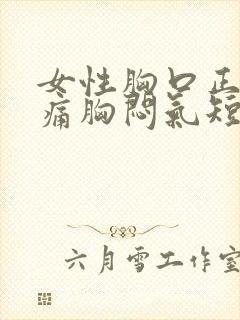 女性胸口正
痛胸悶氣短
六月雪工作室